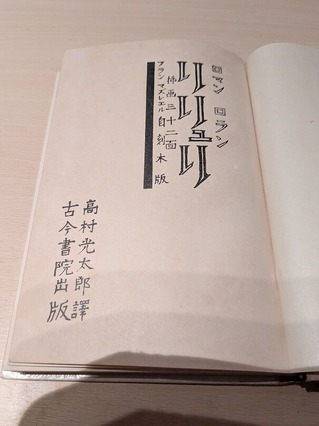 ロマン ロラン
リリュリ
挿画三十二面
フラン マズレエル 自刻木版
高村光太郎譯
古今書院出版